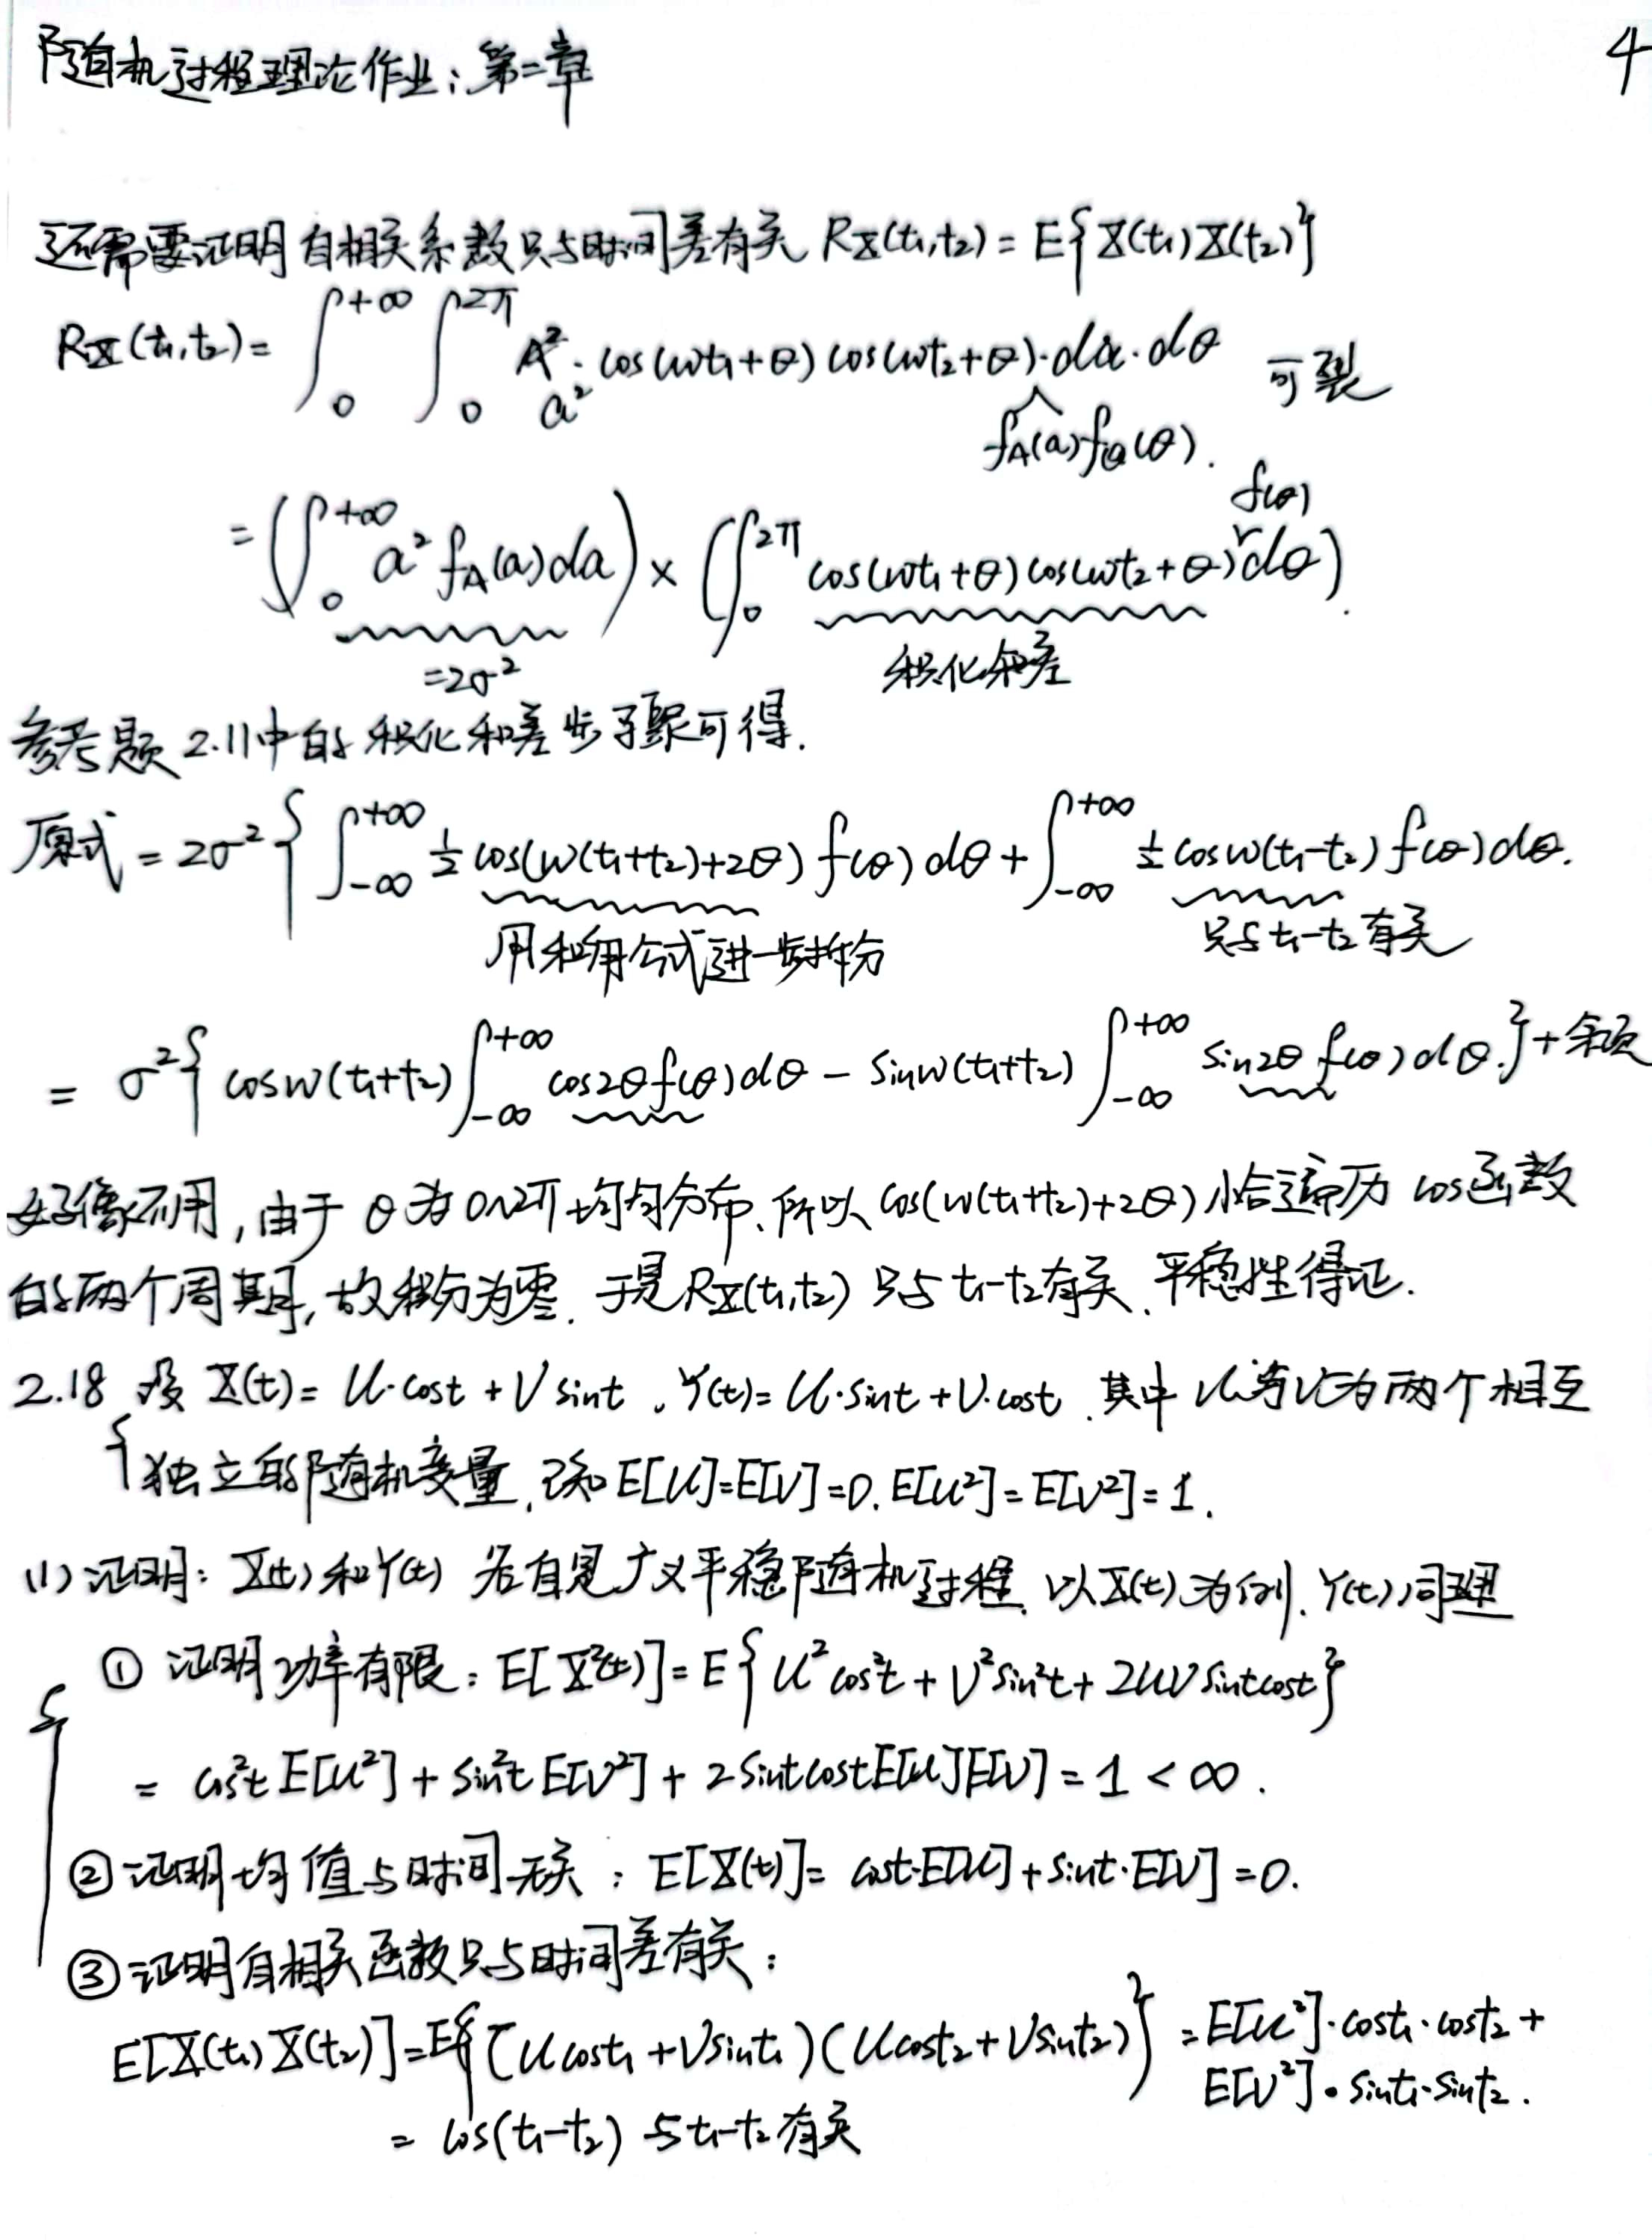 随机过程理论作业：第二章
4
还需要证明自相关系数只与时间差有关 R_X(t₁,t₂) = E{X(t₁)X(t₂)}
R_X(t₁,t₂) = ∫₀^{+∞} ∫₀^{2π} a² · cos(wt₁+θ) cos(wt₂+θ) · da · dθ 可裂
f_A(a) f_Θ(θ).
f(θ)
= (∫₀^{+∞} a² f_A(a) da) × (∫₀^{2π} cos(wt₁+θ) cos(wt₂+θ) dθ).
=2σ² 积化和差
参考题 2.11中的积化和差步骤可得.
原式 = 2σ² { ∫_{-∞}^{+∞} ½ cos(w(t₁+t₂)+2θ) f(θ) dθ + ∫_{-∞}^{+∞} ½ cos w(t₁-t₂) f(θ) dθ.
用和角公式进一步拆分 只与 t₁-t₂ 有关
= σ² { cos w(t₁+t₂) ∫_{-∞}^{+∞} cos2θ f(θ) dθ - sin w(t₁+t₂) ∫_{-∞}^{+∞} sin2θ f(θ) dθ. } + 余项
好像不用, 由于 θ 为 0~2π 均匀分布、所以 cos(w(t₁+t₂)+2θ) 恰遍历 cos函数
的两个周期, 故积分为零. 于是 R_X(t₁,t₂) 只与 t₁-t₂ 有关, 平稳性得证.
2.18 设 X(t) = U·cost + V sint, Y(t) = U·sint + V·cost. 其中 U与V为两个相互
独立的随机变量, 已知 E[U]=E[V]=0. E[U²]=E[V²]=1.
(1) 证明: X(t) 和 Y(t) 各自是广义平稳随机过程. 以X(t)为例. Y(t)同理
① 证明功率有限: E[X²(t)] = E{ U²cos²t + V²sin²t + 2UV sint cost }
= cos²t E[U²] + sin²t E[V²] + 2 sint cost E[U]E[V] = 1 < ∞.
② 证明均值与时间无关: E[X(t)] = cost·E[U] + sint·E[V] = 0.
③ 证明自相关函数只与时间差有关:
E[X(t₁)X(t₂)] = E{ (U cost₁ + V sint₁)(U cost₂ + V sint₂) } = E[U²]·cost₁·cost₂ +
E[V²]·sint₁·sint₂.
= cos(t₁-t₂) 与 t₁-t₂ 有关